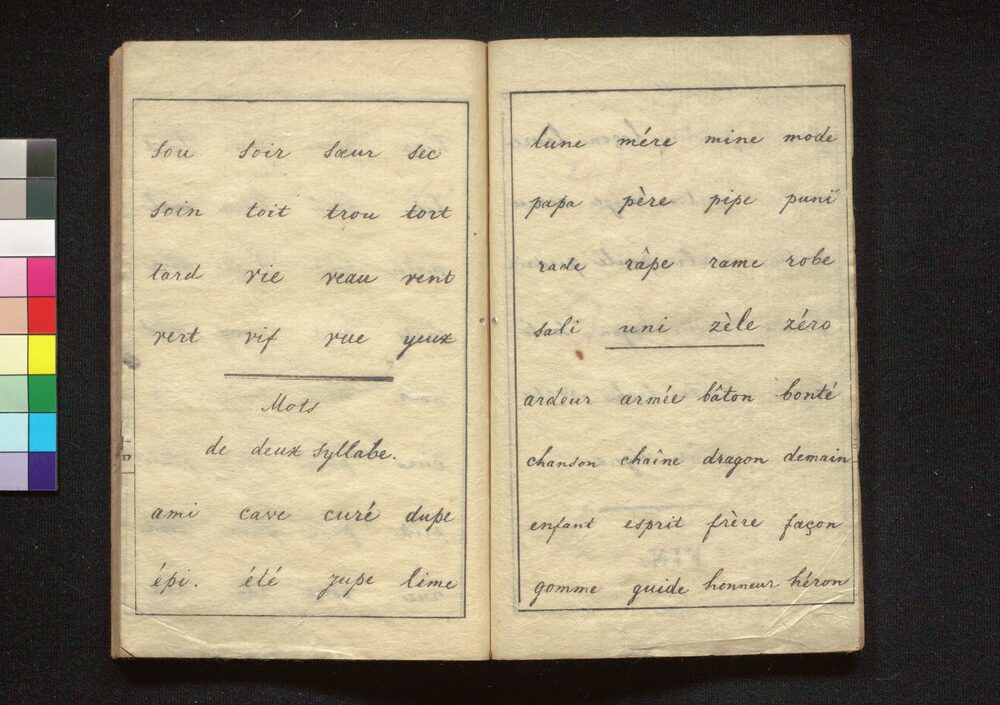 sou soir sœur sec
soin toit trou tort
tard vie veau vent
vert vif vue yeux
Mots
de deux syllabe.
ami cave curé dupe
épi. été jupe lime
lune mére mine mode
papa père pipe puni
rade râpe rame robe
sali uni zèle zéro
ardeur armée bâton bonté
chanson chaîne dragon demain
enfant esprit frère façon
gomme guide honneur héron